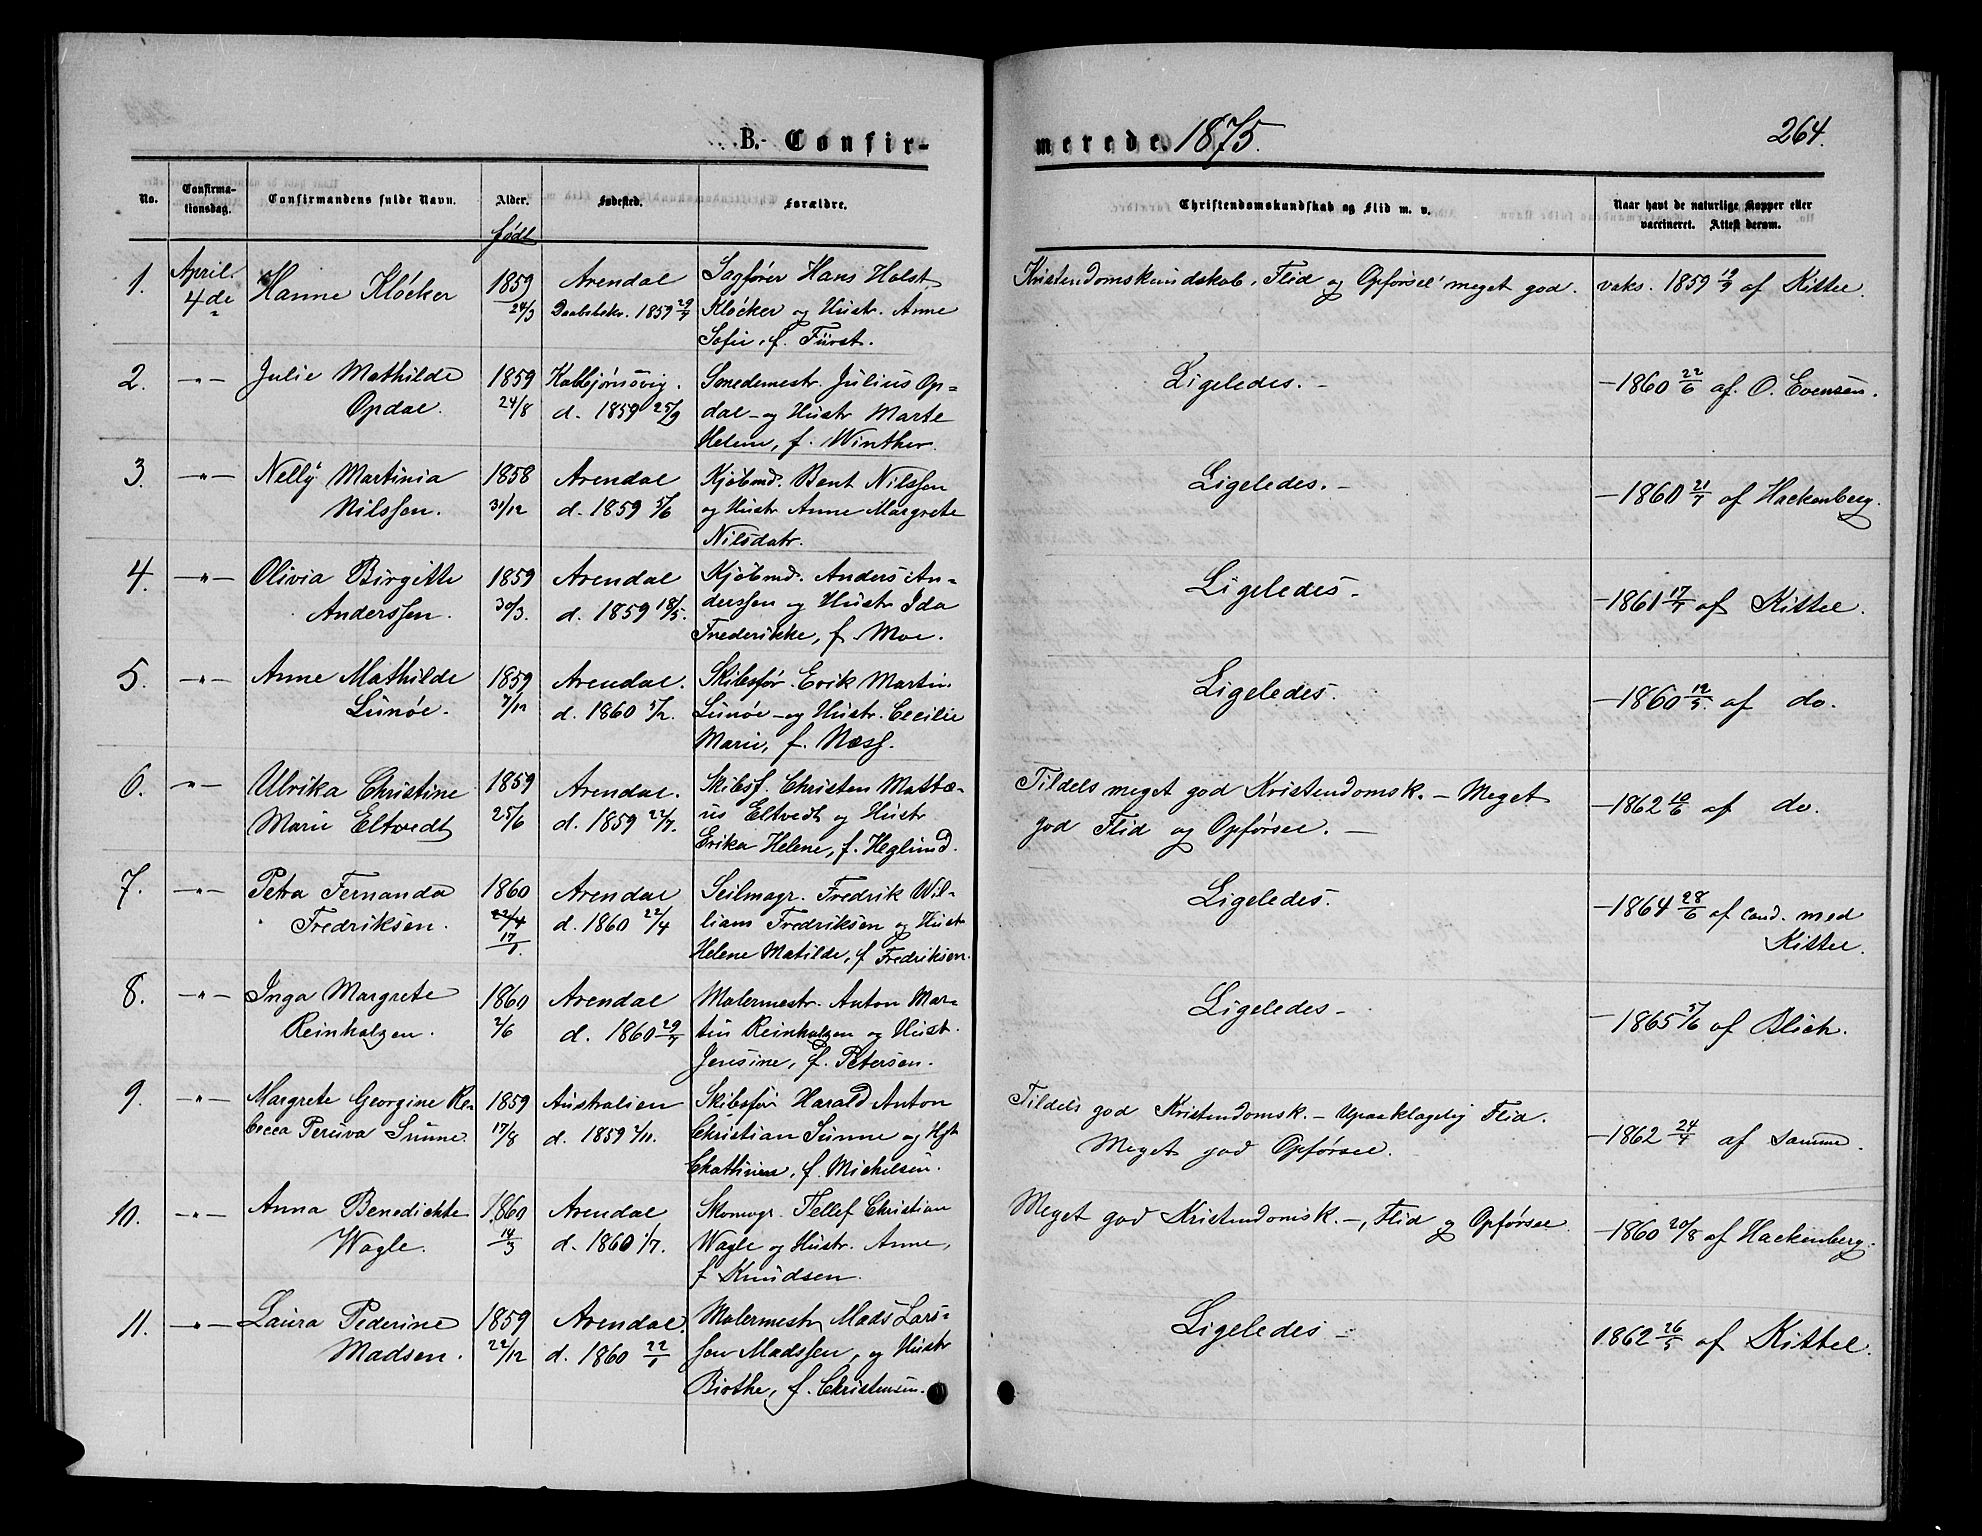 B. Confirmerede. 1875. 264.
No. Confirmationsdag. Confirmandens fulde Navn. Alder. Fødested. Forældre. Christendomskundskab og Flid m. v. Naar havt de naturlige Kopper eller vaccineret. Attest derom.
født
1. April. Hanne Kløcker 1859 Arendal Sagfører Hans Holst Kristendomskundskab, Flid og Opførsel meget god. vaks. 1859 19/9 af Kittel.
4de 24/3 Daabsbekr. 1859 29/7 Kløcker og Hustr. Anne
Sofie, f. Fürst.
2. -"- Julie Mathilde 1859 Kolbjørnsvig. Smedemestr. Julius Op- Ligeledes. - -1860 22/6 af. O. Evensen.
Opdal. 24/8 d. 1859 25/9 dal - og Hustr Marte
Helene, f. Winther.
3. -"- Nelly Martinia 1858 Arendal Kjøbmd. Bent Nilssen Ligeledes. - -1860 21/7 af Hackenberg.
Nilssen. 31/12 d. 1859 5/6 og Hustr Anne Margrete
Nilsdatr.
4. -"- Olivia Birgitte 1859 Arendal Kjøbmd. Anders An- Ligeledes - -1861 17/7 af Kittel.
Anderssen. 30/3. d. 1859 18/5. derssen og Hustr Ida
Frederikke, f. Moe.
5. -"- Anne Mathilde 1859 Arendal. Skibsfør. Erik Martin Ligeledes. -1860 19/5 af do.
Lunøe. 7/12 d. 1860 5/2. Lunøe - og Hustr. Cecilie
Marie, f. Næss.
6. -"- Ulrika Christine 1859 Arendal. Skibsf. Christen Mattæ- Tildels meget god Kristendomsk. - Meget -1862 10/6 af do.
Marie Eltvedt 25/6 d. 1859 24/7. us Eltvedt og Hustr god Flid og Opførsel. -
Erika Helene, f. Heglund.
7. -"- Petra Fernanda 1860 Arendal Seilmagr. Fredrik Wil- Ligeledes. -1864 28/6 af cand. med
Fredriksen. 22/4 d. 1860 22/4 liam Fredriksen og Hust Kittel.
17/1. Helene Matilde, f Fredriksen.
8. -"- Inga Margrete 1860 Arendal Malermestr. Anton Mar- Ligeledes - - 1865 5/6 af Blich.
Reinholzen. 2/6 d. 1860 29/7 tin Reinholzen og Hust.
Jensine, f. Petersen.
9. -"- Margrete Georgine Re- 1859 Australien Skibsfør Harald Anton Tildels god Kristendomsk. - Upaaklagelig Flid. -1862 24/4 af samme.
becca Peruva Sunne. 17/8 d. 1859 2/11. Christian Sunne og Hst Meget god Opførsel.
Chatrine, f. Michelsen.
10. -"- Anna Benedichte 1860 Arendal Skomagr. Tellef Christian Meget god Kristendomsk. -, Flid og Opførsel. -1860 20/8 af Hackenberg.
Wagle. 14/3 d. 1860 1/7. Wagle og Hustr. Anne,
f Knudsen.
11. -"- Laura Pederine 1859 Arendal. Malermestr Mads Lars- Ligeledes - 1862 26/5 af Kittel.
Madsen. 22/12 d. 1860 22/1 sen Madssen, og Hustr
Birthe, f. Christensen.